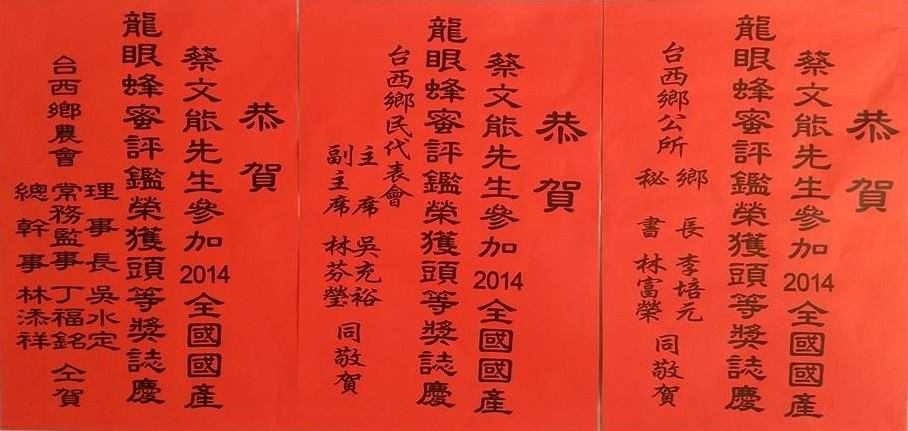 恭賀
蔡文能先生參加2014全國國產
龍眼蜂蜜評鑑榮獲頭等獎誌慶
台西鄉公所
鄉長李培元
秘書林富榮
同敬賀
恭賀
蔡文能先生參加2014全國國產
龍眼蜂蜜評鑑榮獲頭等獎誌慶
台西鄉民代表會
主席吳充裕
副主席林芬瑩
同敬賀
恭賀
蔡文能先生參加2014全國國產
龍眼蜂蜜評鑑榮獲頭等獎誌慶
台西鄉農會
理事長吳水定
常務監事丁福銘
總幹事林添祥
仝賀